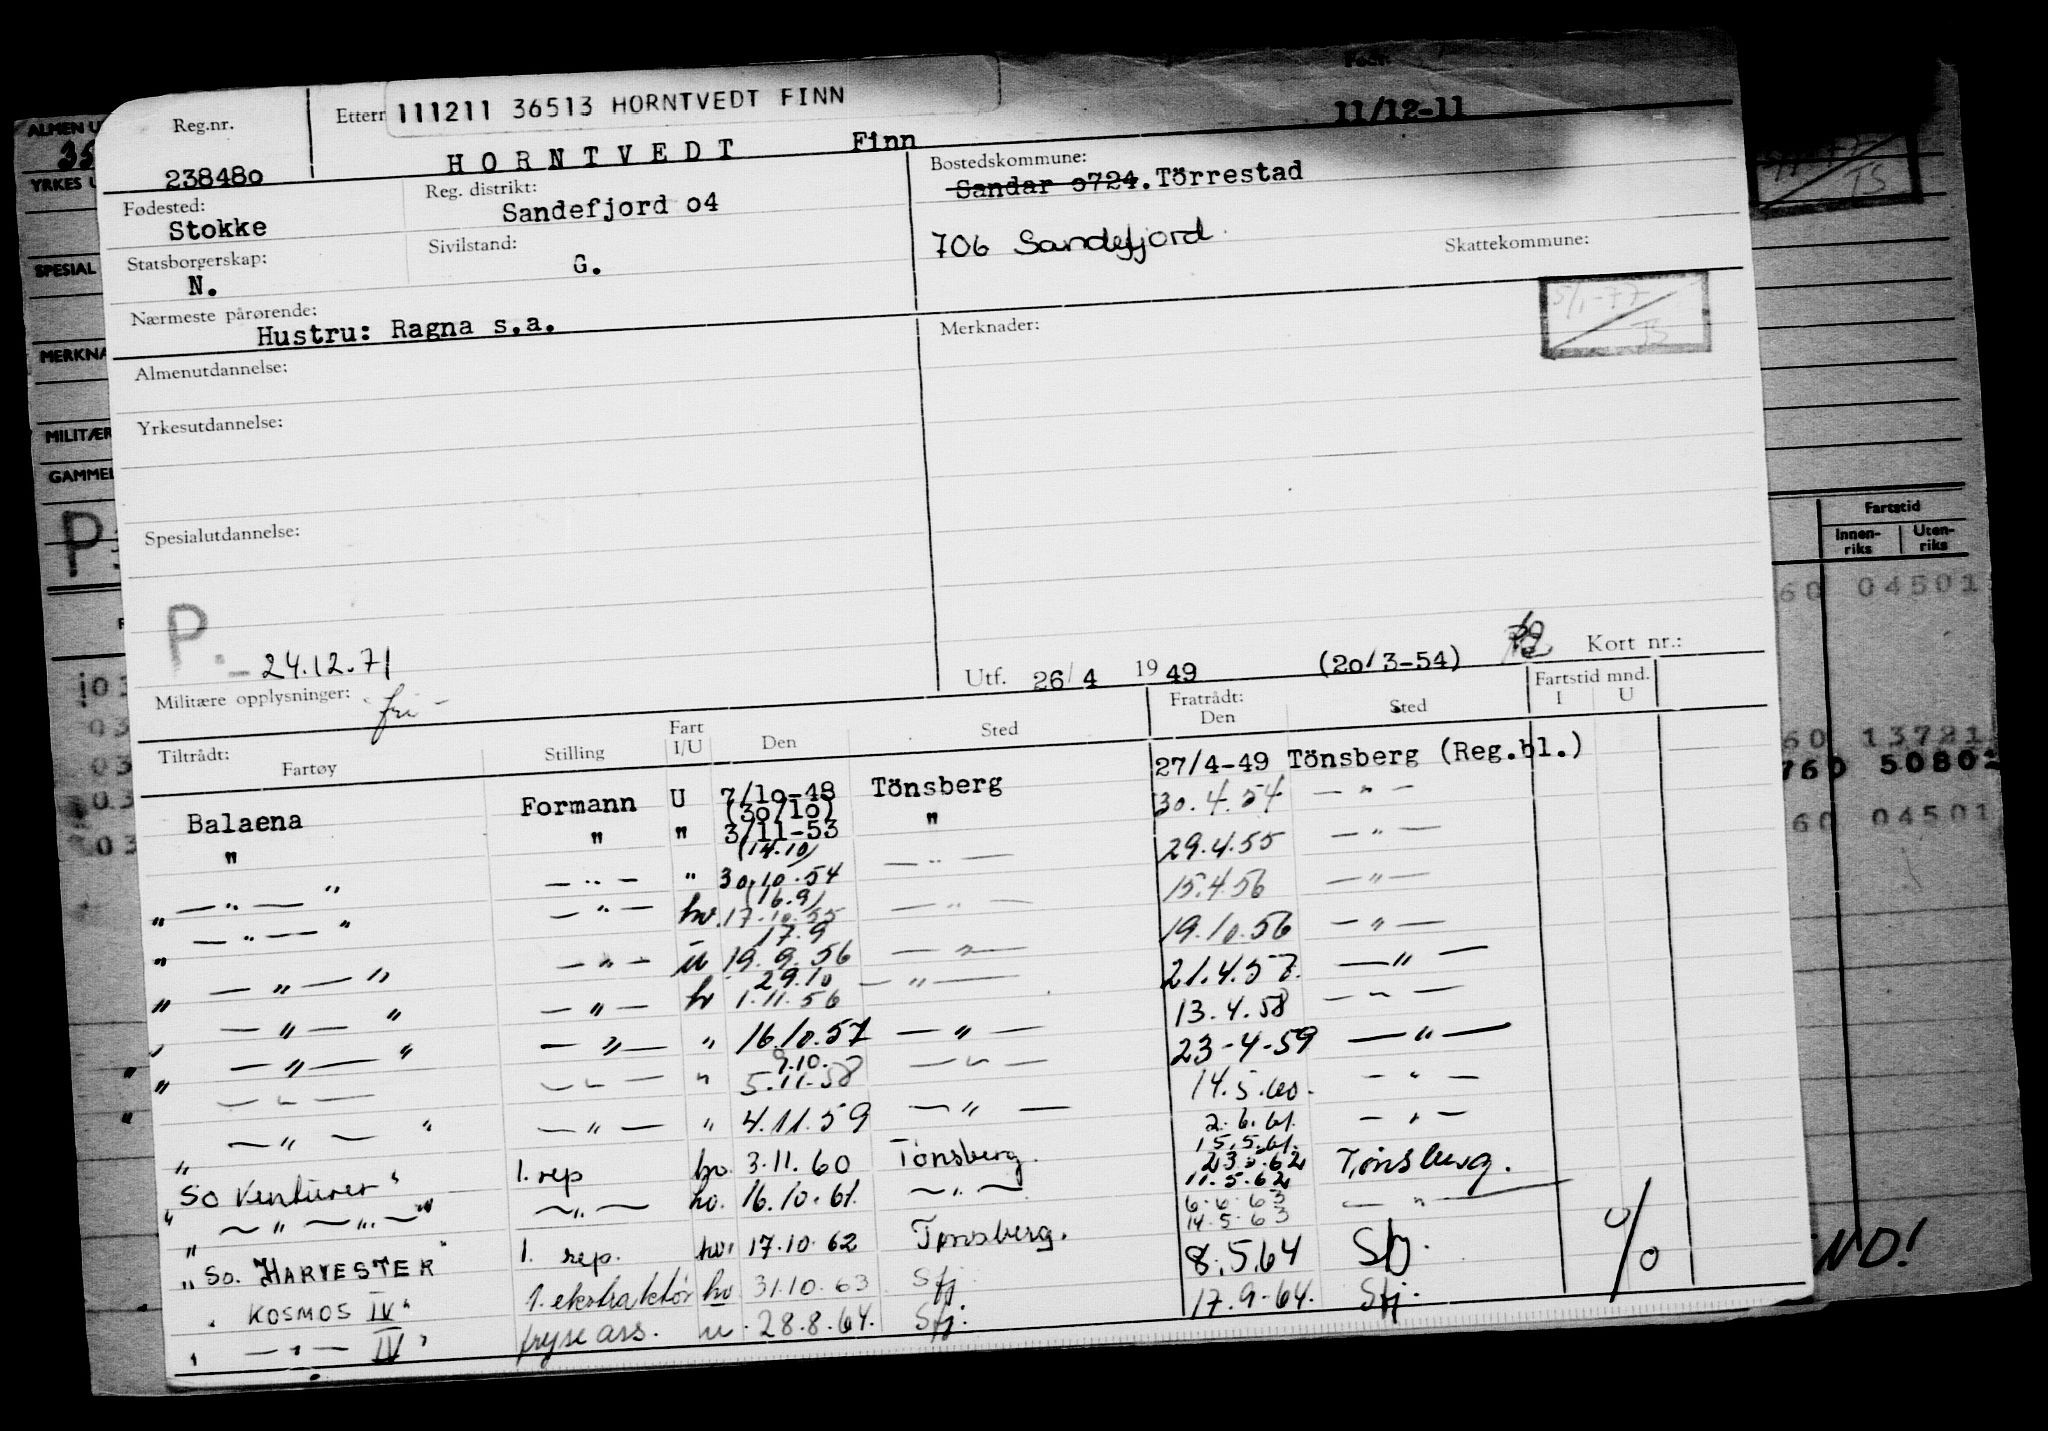 111211 36513 HORNTVEDT FINN
Reg.nr. Etterr 11/12-11
238480 HORNTVEDT Finn
Fødested: Stokke
Reg. distrikt: Sandefjord o4
Bostedskommune: Sandar o724. Törrestad
706 Sandefjord
Skattekommune:
Statsborgerskap: N.
Sivilstand: G.
Nærmeste pårørende: Hustru: Ragna s.a.
Merknader: 5/1-77 TS
Almenutdannelse:
Yrkesutdannelse:
Spesialutdannelse:
P. - 24.12.71
Militære opplysninger: fri -
Utf. 26/4 1949 (20/3-54) Kort nr.:
Tiltrådt: Fartøy Stilling Fart I/U Den Sted Fratrådt: Den Sted Fartstid mnd. I U
Balaena Formann U 7/10-48 Tönsberg 27/4-49 Tönsberg (Reg.bl.)
" " " (30/10) 3/11-53 " 30.4.54 — " —
" — " — " — " — " (14.10) 30.10.54 — " — 29.4.55 — " —
" — " — " — " — hv. (16.9) 17.10.55 — " — 15.4.56 — " —
" — " — " — " — u 17.9 19.9.56 — " — 19.10.56 — " —
" — " — " — " — hv 29.10 1.11.56 — " — 21.4.57. — " —
" — " — " — " — " 16.10.57 — " — 13.4.58 — " —
— " — — " — " 9.10. 5.11.58 — " — 23-4-59 — " —
" — " — " — " — " 4.11.59 — " — 14.5.60. — " —
" So Venturer " 1. rep hv. 3.11.60 Tønsberg. 2.6.61. 15.5.61. — " —
" — " — " — " — " — hv. 16.10.61. — " — 23.5.62 11.5.62 Tønsberg.
" So. HARVESTER " 1. rep. hv. 17.10.62 Tønsberg. 6.6.63 14.5.63 — " —
" KOSMOS IV " 1. ekstraktør hv 31.10.63 Sfj 8.5.64 Sfj.
" — " — IV " fryse ass. u. 28.8.64. Sfj. 17.9-64. Sfj.
ALMEN U
35
YRKES U
SPESIAL
MERKNA
MILITÆR
GAMMEL
P
TS
Fartstid
Innenriks Utenriks
60 04501
60 13721
760 50802
60 04501
ND!